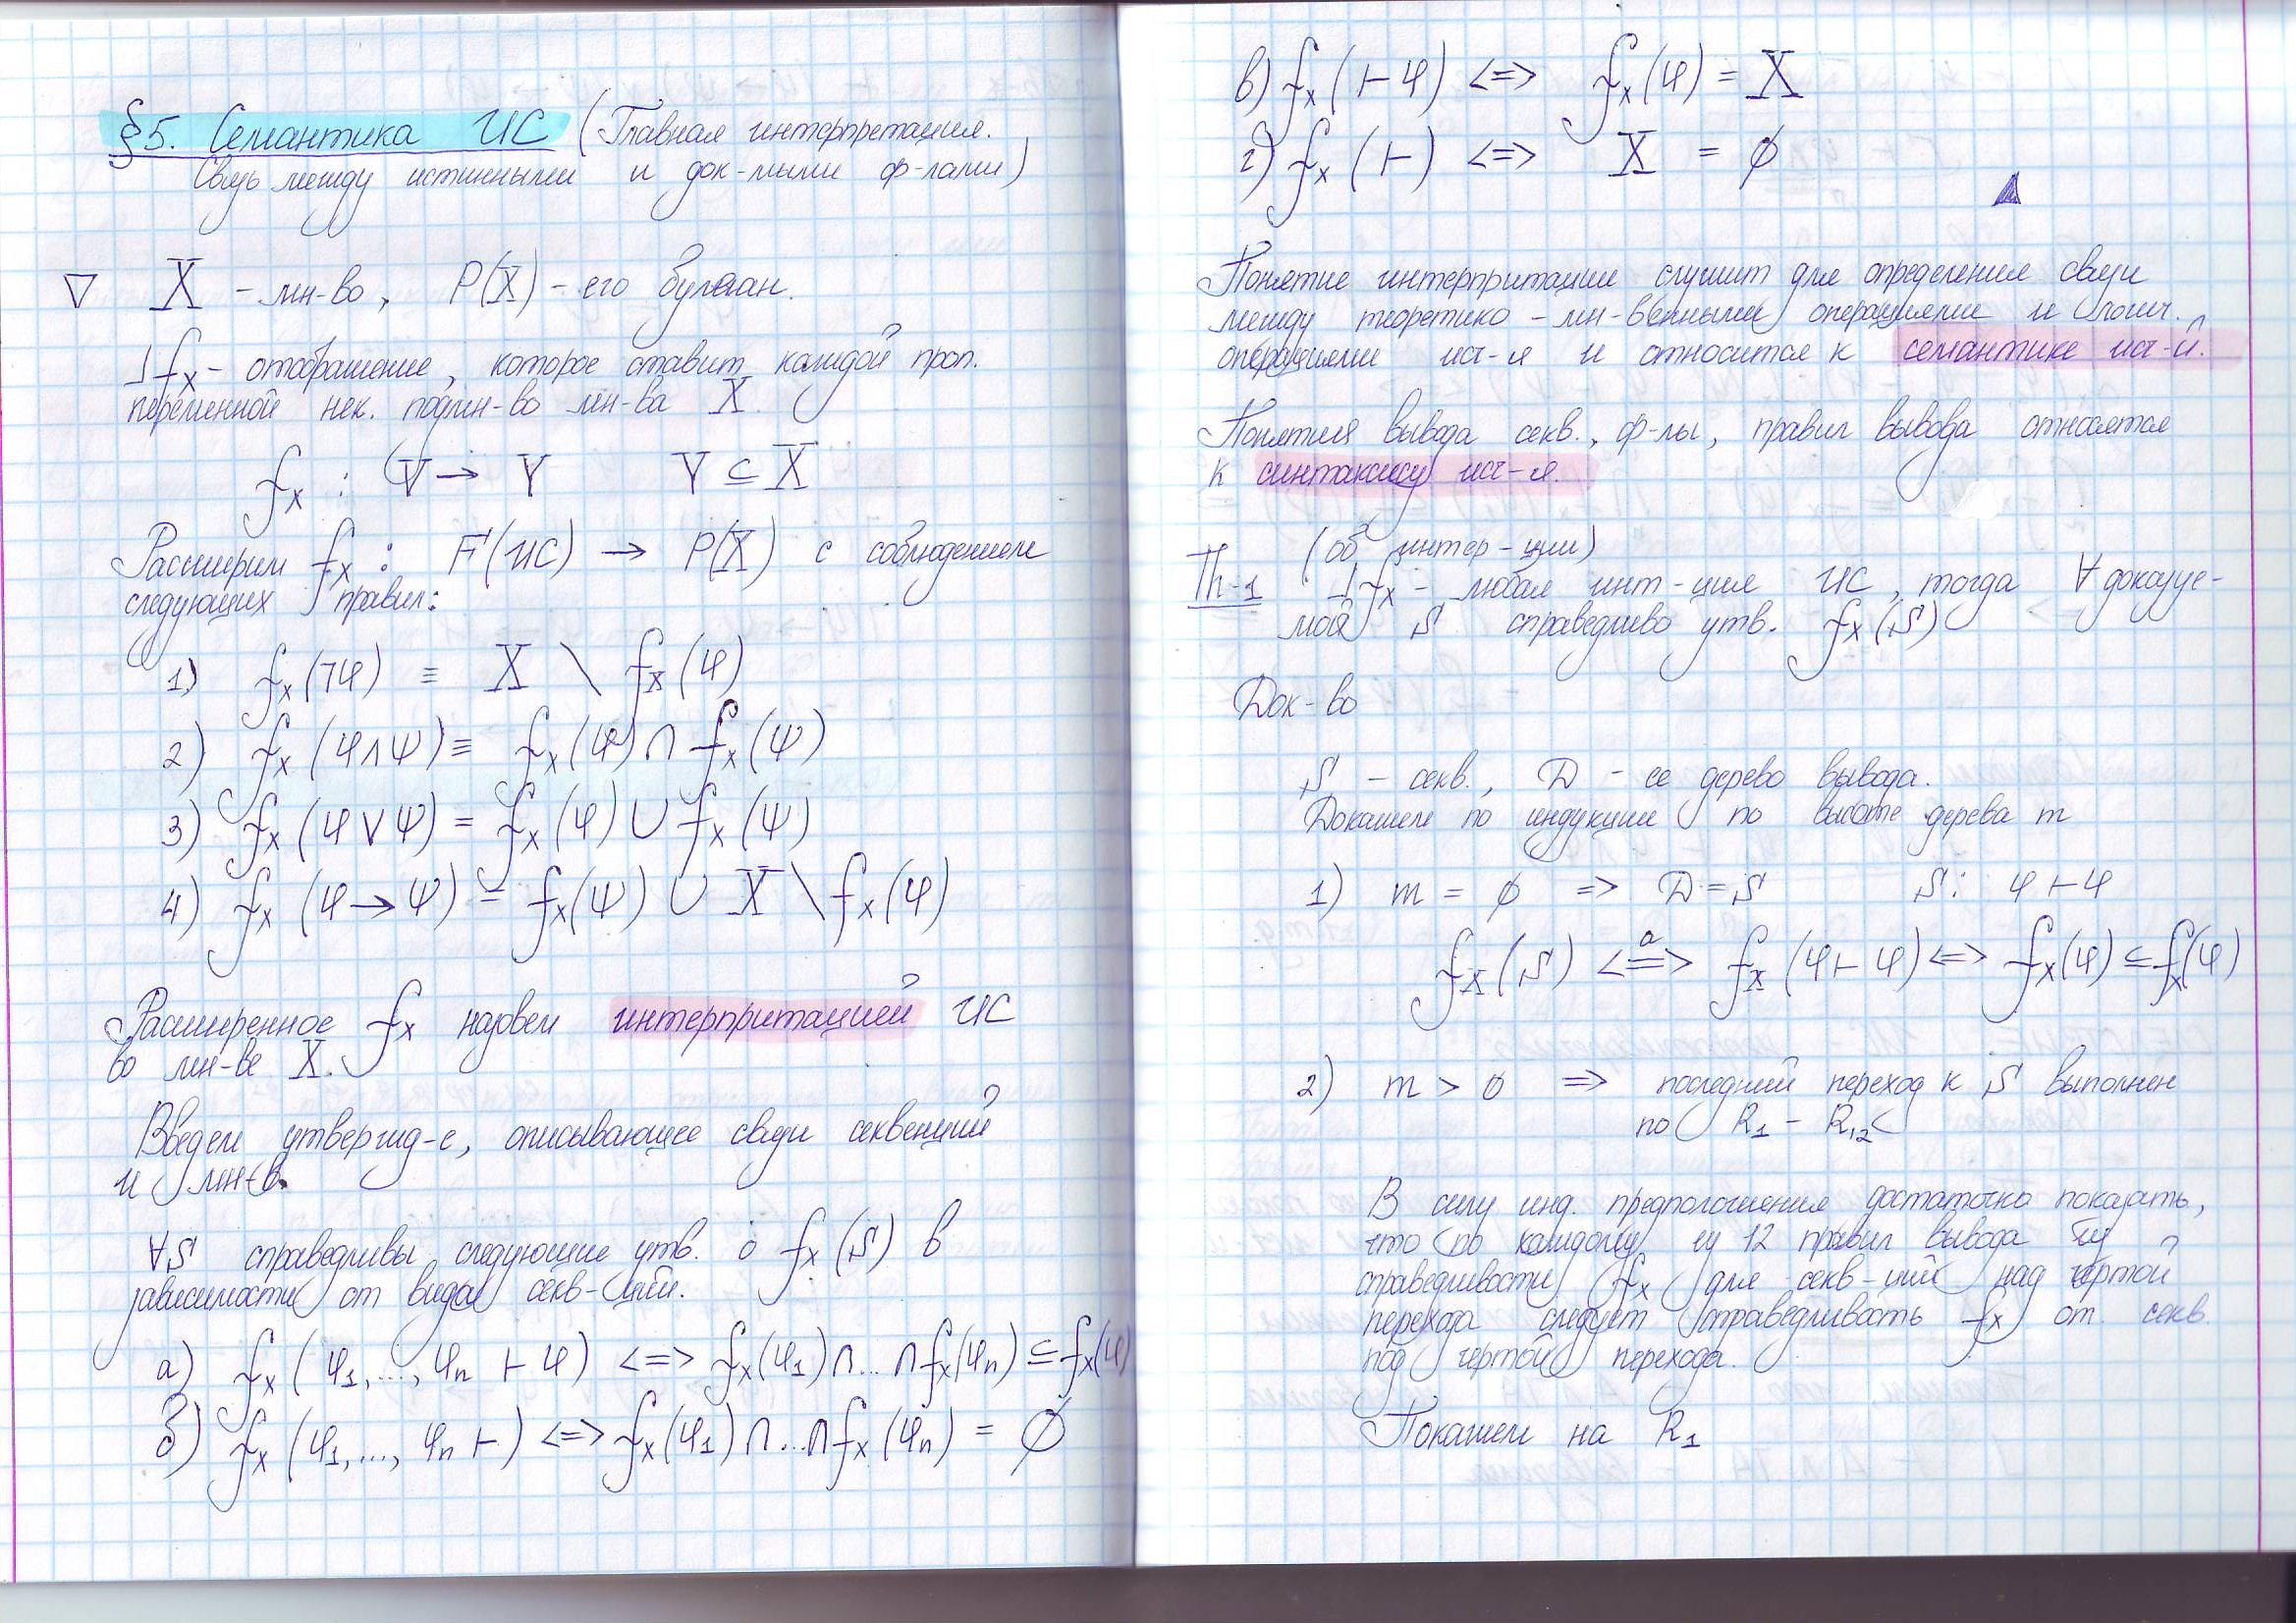 §5. Семантика ИС (Главная интерпретация.
Связь между истинными и док-мыми ф-лами)
▽ X – мн-во, P(X) – его булеан.
⅃ fx – отображение, которое ставит каждой проп.
переменной нек. подмн-во мн-ва X.
fx : V → Y Y ⊆ X
Расширим fx : F(ИС) → P(X) с соблюдением
следующих правил:
1) fx(¬φ) ≡ X \ fx(φ)
2) fx(φ∧ψ) ≡ fx(φ) ∩ fx(ψ)
3) fx(φ∨ψ) = fx(φ) ∪ fx(ψ)
4) fx(φ→ψ) = fx(ψ) ∪ X \ fx(φ)
Расширенное fx назовем интерпритацией ИС
во мн-ве X.
Введем утвержд-е, описывающее связи секвенций
и мн-в.
∀S справедливы следующие утв. о fx(S) в
зависимости от вида секв-ций.
а) fx(φ1,..., φn ⊢ φ) <=> fx(φ1)∩...∩fx(φn) ⊆ fx(φ)
б) fx(φ1,..., φn ⊢) <=> fx(φ1)∩...∩fx(φn) = ∅
в) fx(⊢φ) <=> fx(φ) = X
г) fx(⊢) <=> X = ∅
▲
Понятие интерпритации служит для определения связи
между теоретико – мн-венными операциями и логич.
операциями исч-я и относится к семантике исч-й.
Понятия вывода секв., ф-лы, правил вывода относятся
к синтаксису исч-я.
(об интер-ции)
Th-1 ⅃ fx – любая инт-ция ИС, тогда ∀ доказуе-
мой S справедливо утв. fx(S)
Док-во
S – секв., D – ее дерево вывода.
Докажем по индукции по высоте дерева m
1) m = ∅ => D = S S: φ ⊢ φ
fx(S) <=a=> fx(φ ⊢ φ) <=> fx(φ) ⊆ fx(φ)
2) m > 0 => последний переход к S выполнен
по R1 – R12
В силу инд. предположения достаточно показать,
что по каждому из 12 правил вывода из
справедливости fx для секв-ций над чертой
перехода следует справедливость fx от секв.
под чертой перехода.
Покажем на R1